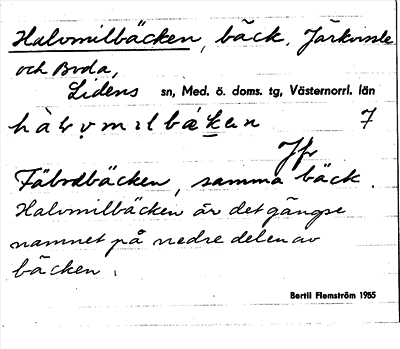 Halvmilbäcken, bäck, Järkvissle
och Boda,
Lidens sn, Med. ö. doms. tg, Västernorrl. län
hàlvmılbäken 7
Jfr
Fäbodbäcken, samma bäck.
Halvmilbäcken är det gängse
namnet på nedre delen av
bäcken.
Bertil Flemström 1955